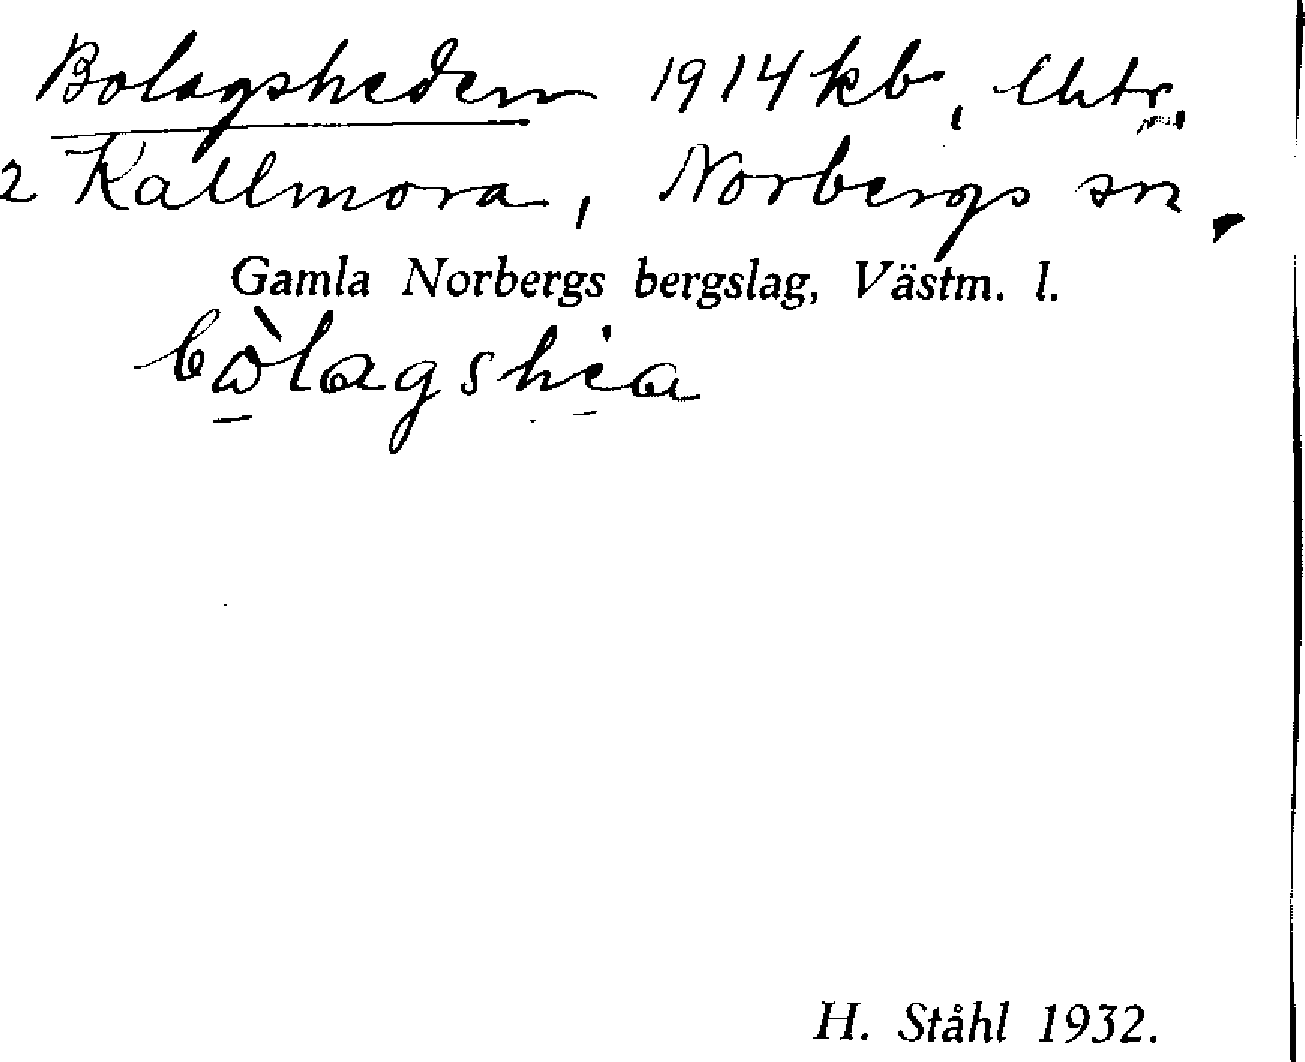 Bolagsheden 1914 kb,
2 Kallmora, Norbergs sn.
Gamla Norbergs bergslag, Västm. l.
bòlagshea
H. Ståhl 1932.